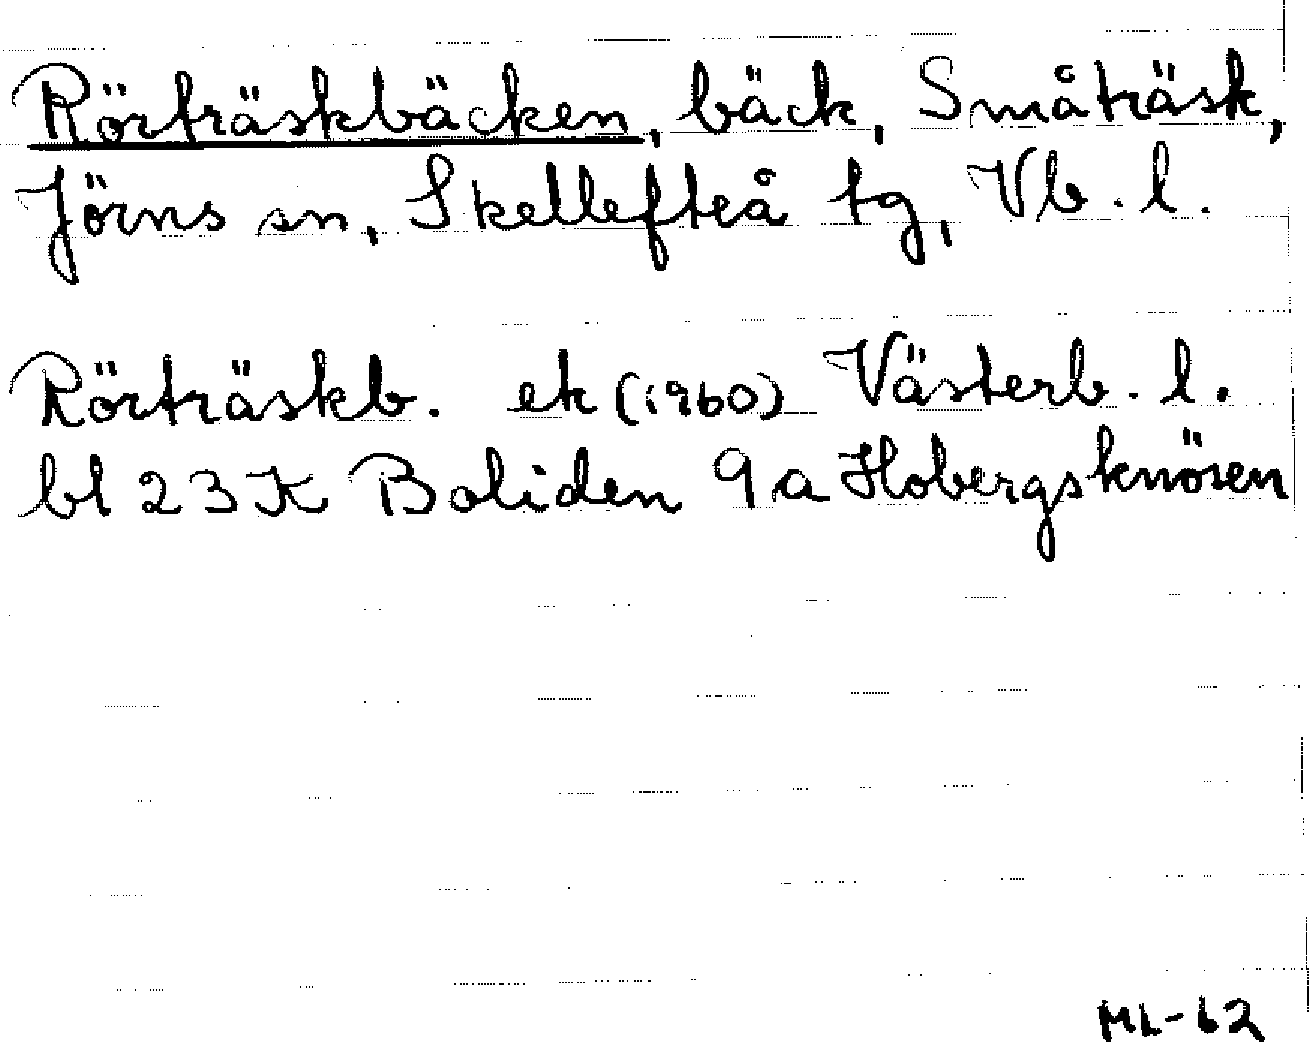 Rörträskbäcken, bäck, Småträsk,
Jörns sn, Skellefteå tg, Vb. l.
Rörträskb. ek (1960) Västerb. l.
bl 23 K Boliden 9a Hobergsknösen
ML-62